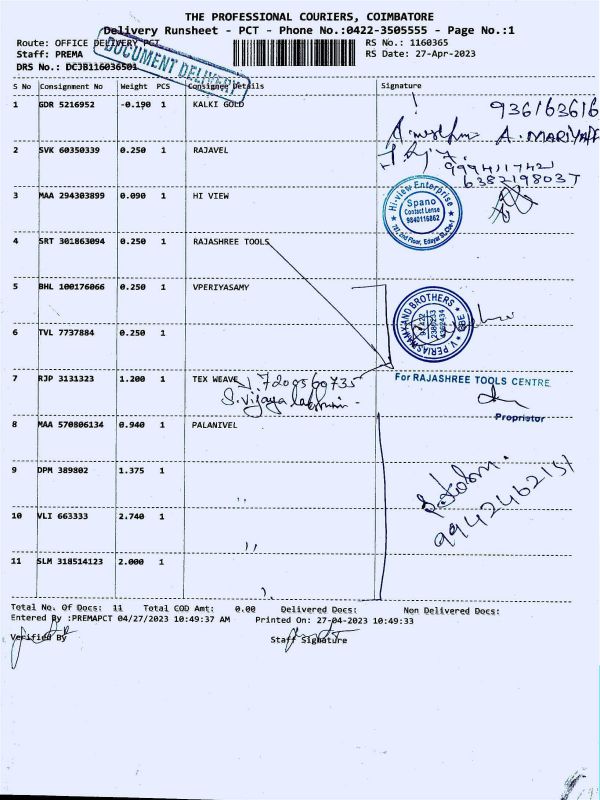 THE PROFESSIONAL COURIERS, COIMBATORE
Delivery Runsheet - PCT - Phone No.:0422-3505555 - Page No.:1
Route: OFFICE DELIVERY PCT
RS No.: 1160365
Staff: PREMA
RS Date: 27-Apr-2023
DRS No.: DCJB116036501
DOCUMENT DELIVERY
S No Consignment No Weight PCS Consignee Details Signature
1 GDR 5216952 -0.190 1 KALKI GOLD
936163616
A. MARIYAPP
2 SVK 60350339 0.250 1 RAJAVEL
9994117421
6382198037
3 MAA 294303899 0.090 1 HI VIEW
Hi-view Enterprise
Spano
Contact Lense
9840116862
4 SRT 301863094 0.250 1 RAJASHREE TOOLS
5 BHL 100176066 0.250 1 VPERIYASAMY
V. PERIASAMY AND BROTHERS
CBE
6 TVL 7737884 0.250 1
7 RJP 3131323 1.200 1 TEX WEAVE
7200560735
S. vijaya lakshmi
For RAJASHREE TOOLS CENTRE
Proprietor
8 MAA 570806134 0.940 1 PALANIVEL
9 DPM 389802 1.375 1 ,,
9942462151
10 VLI 663333 2.740 1 ,,
11 SLM 318514123 2.000 1
Total No. Of Docs: 11 Total COD Amt: 0.00 Delivered Docs: Non Delivered Docs:
Entered By :PREMAPCT 04/27/2023 10:49:37 AM Printed On: 27-04-2023 10:49:33
Verified By Staff Signature